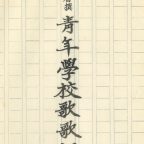 撰 青年學校歌歌